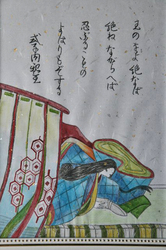 玉のをよ絶なば
絶ねながらへば
忍ぶることの
よはりもぞする
式子内親王